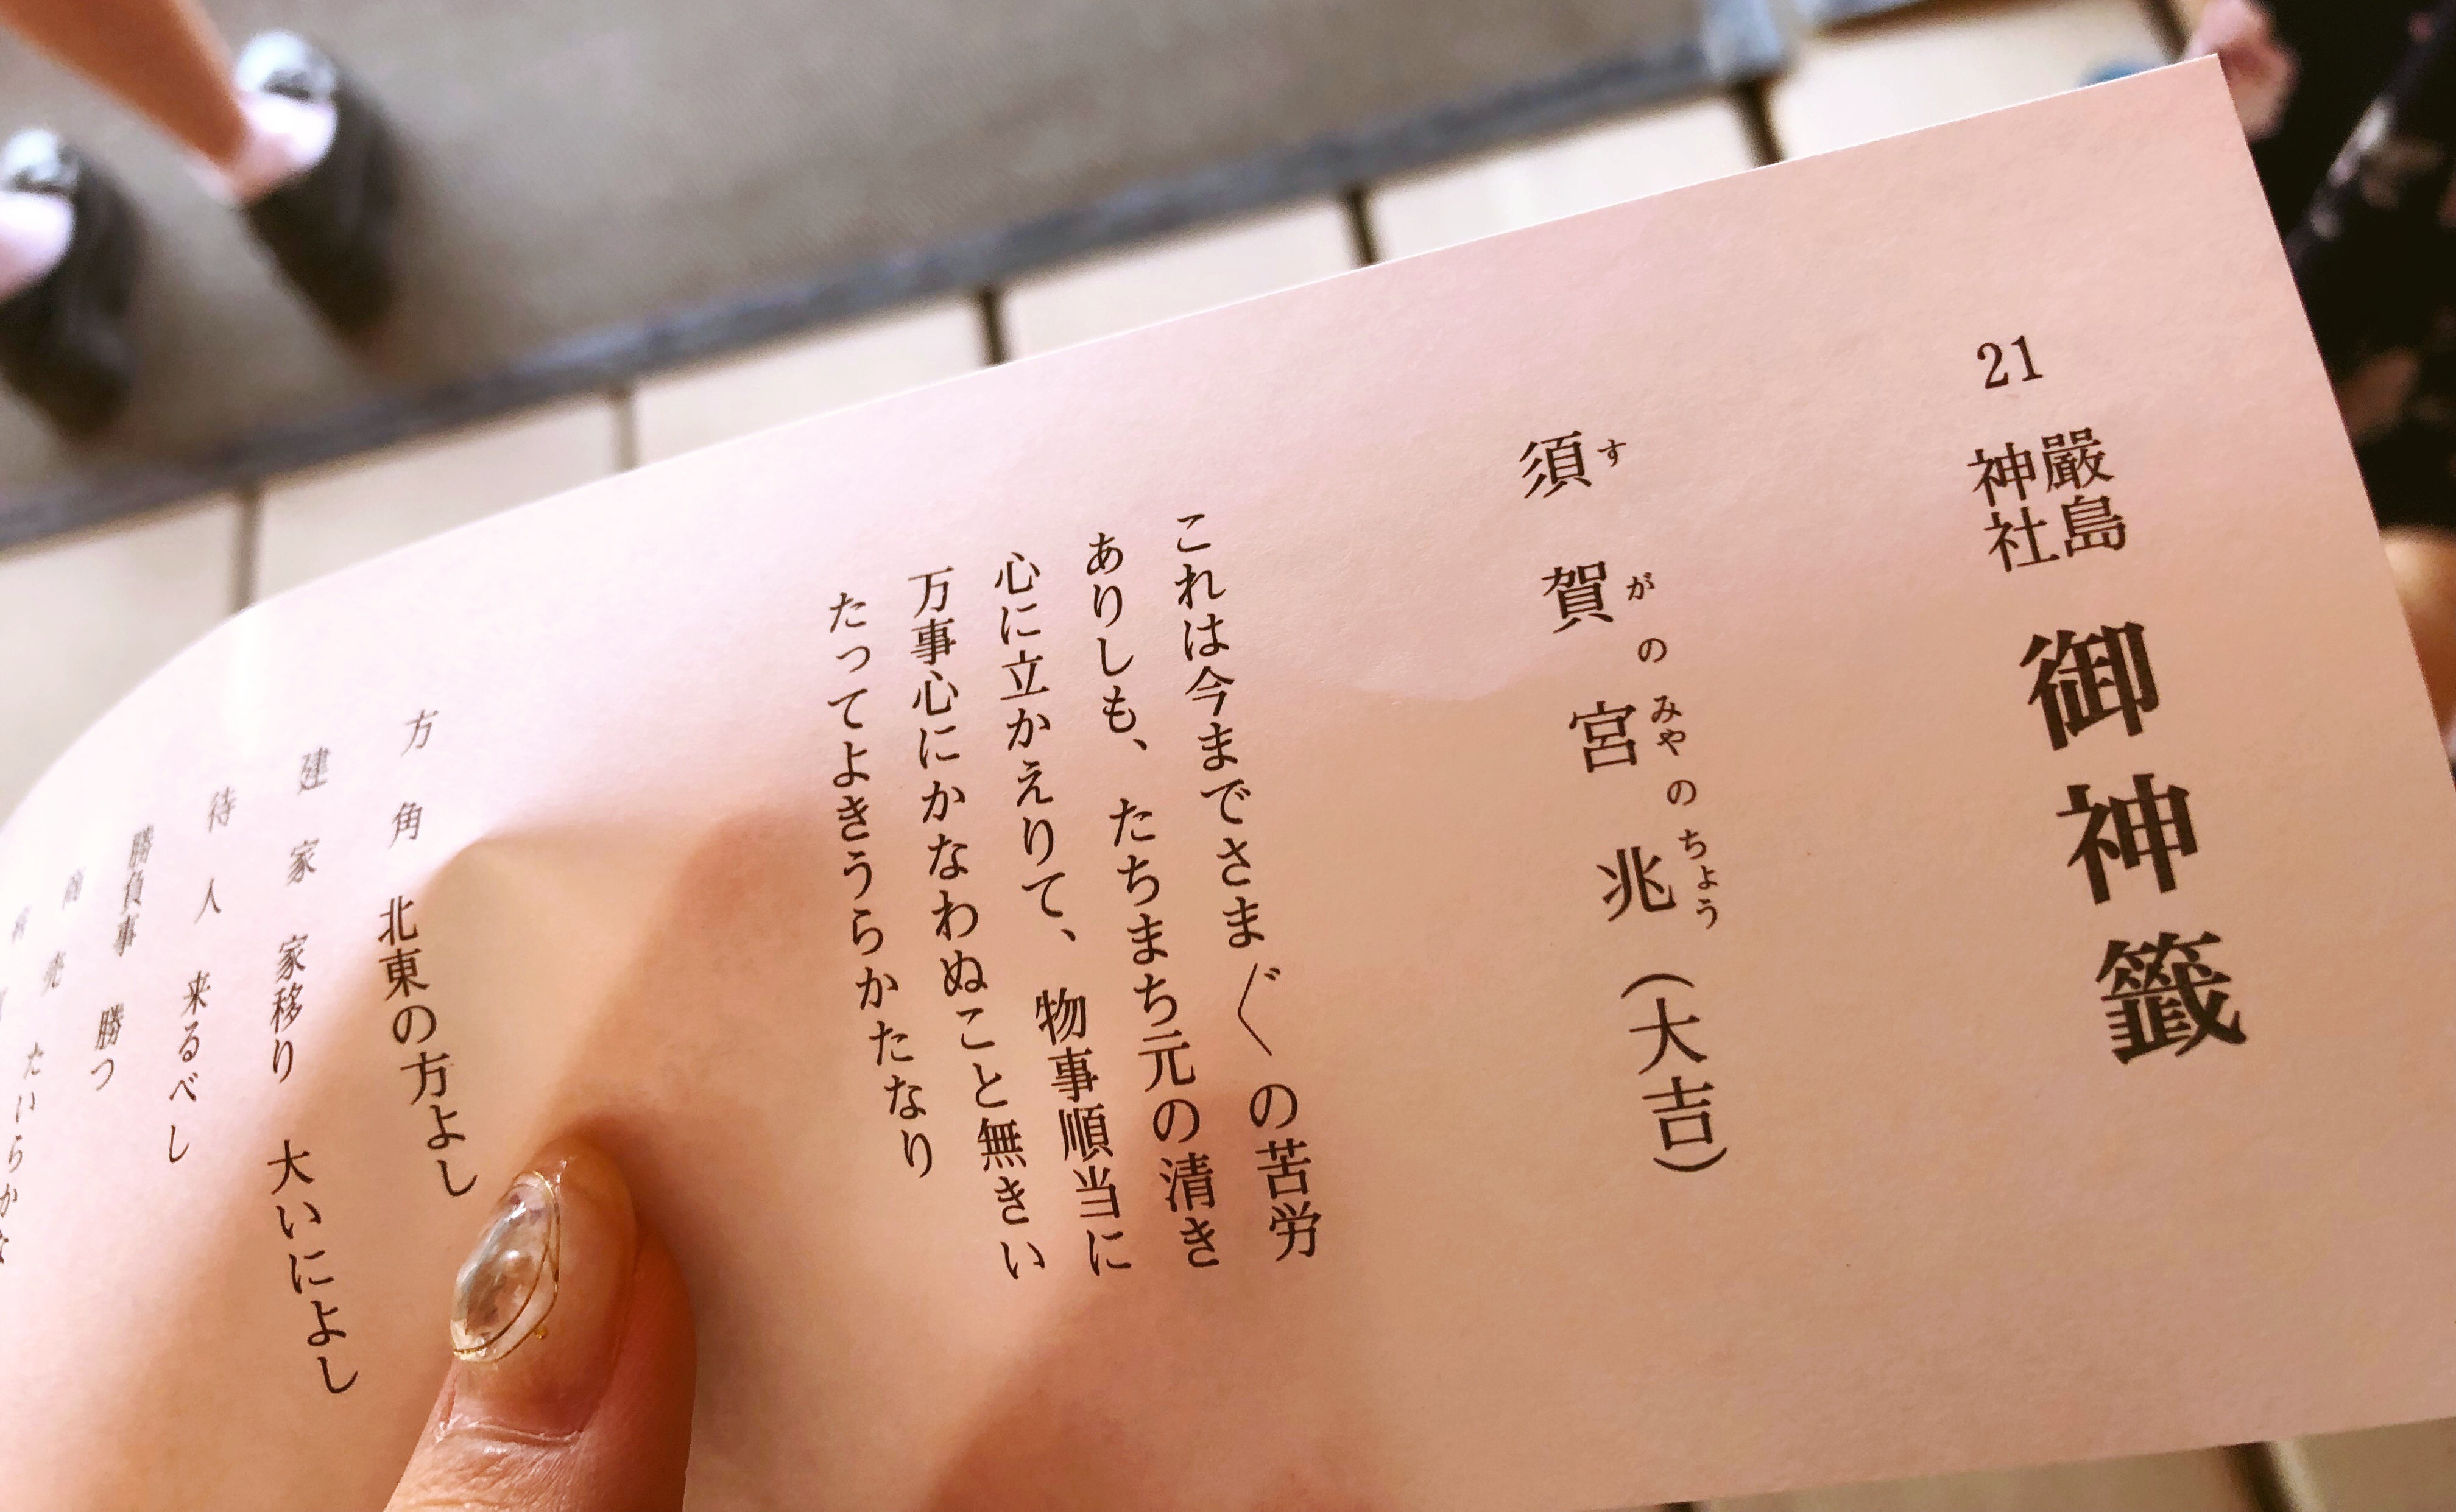 21 嚴島神社 御神籤
須賀宮兆（大吉）
す が の みや の ちょう
これは今までさま〲の苦労
ありしも、たちまち元の清き
心に立かえりて、物事順当に
万事心にかなわぬこと無きい
たってよきうらかたなり
方角 北東の方よし
建家 家移り 大いによし
待人 来るべし
勝負事 勝つ
商売 たいらかな